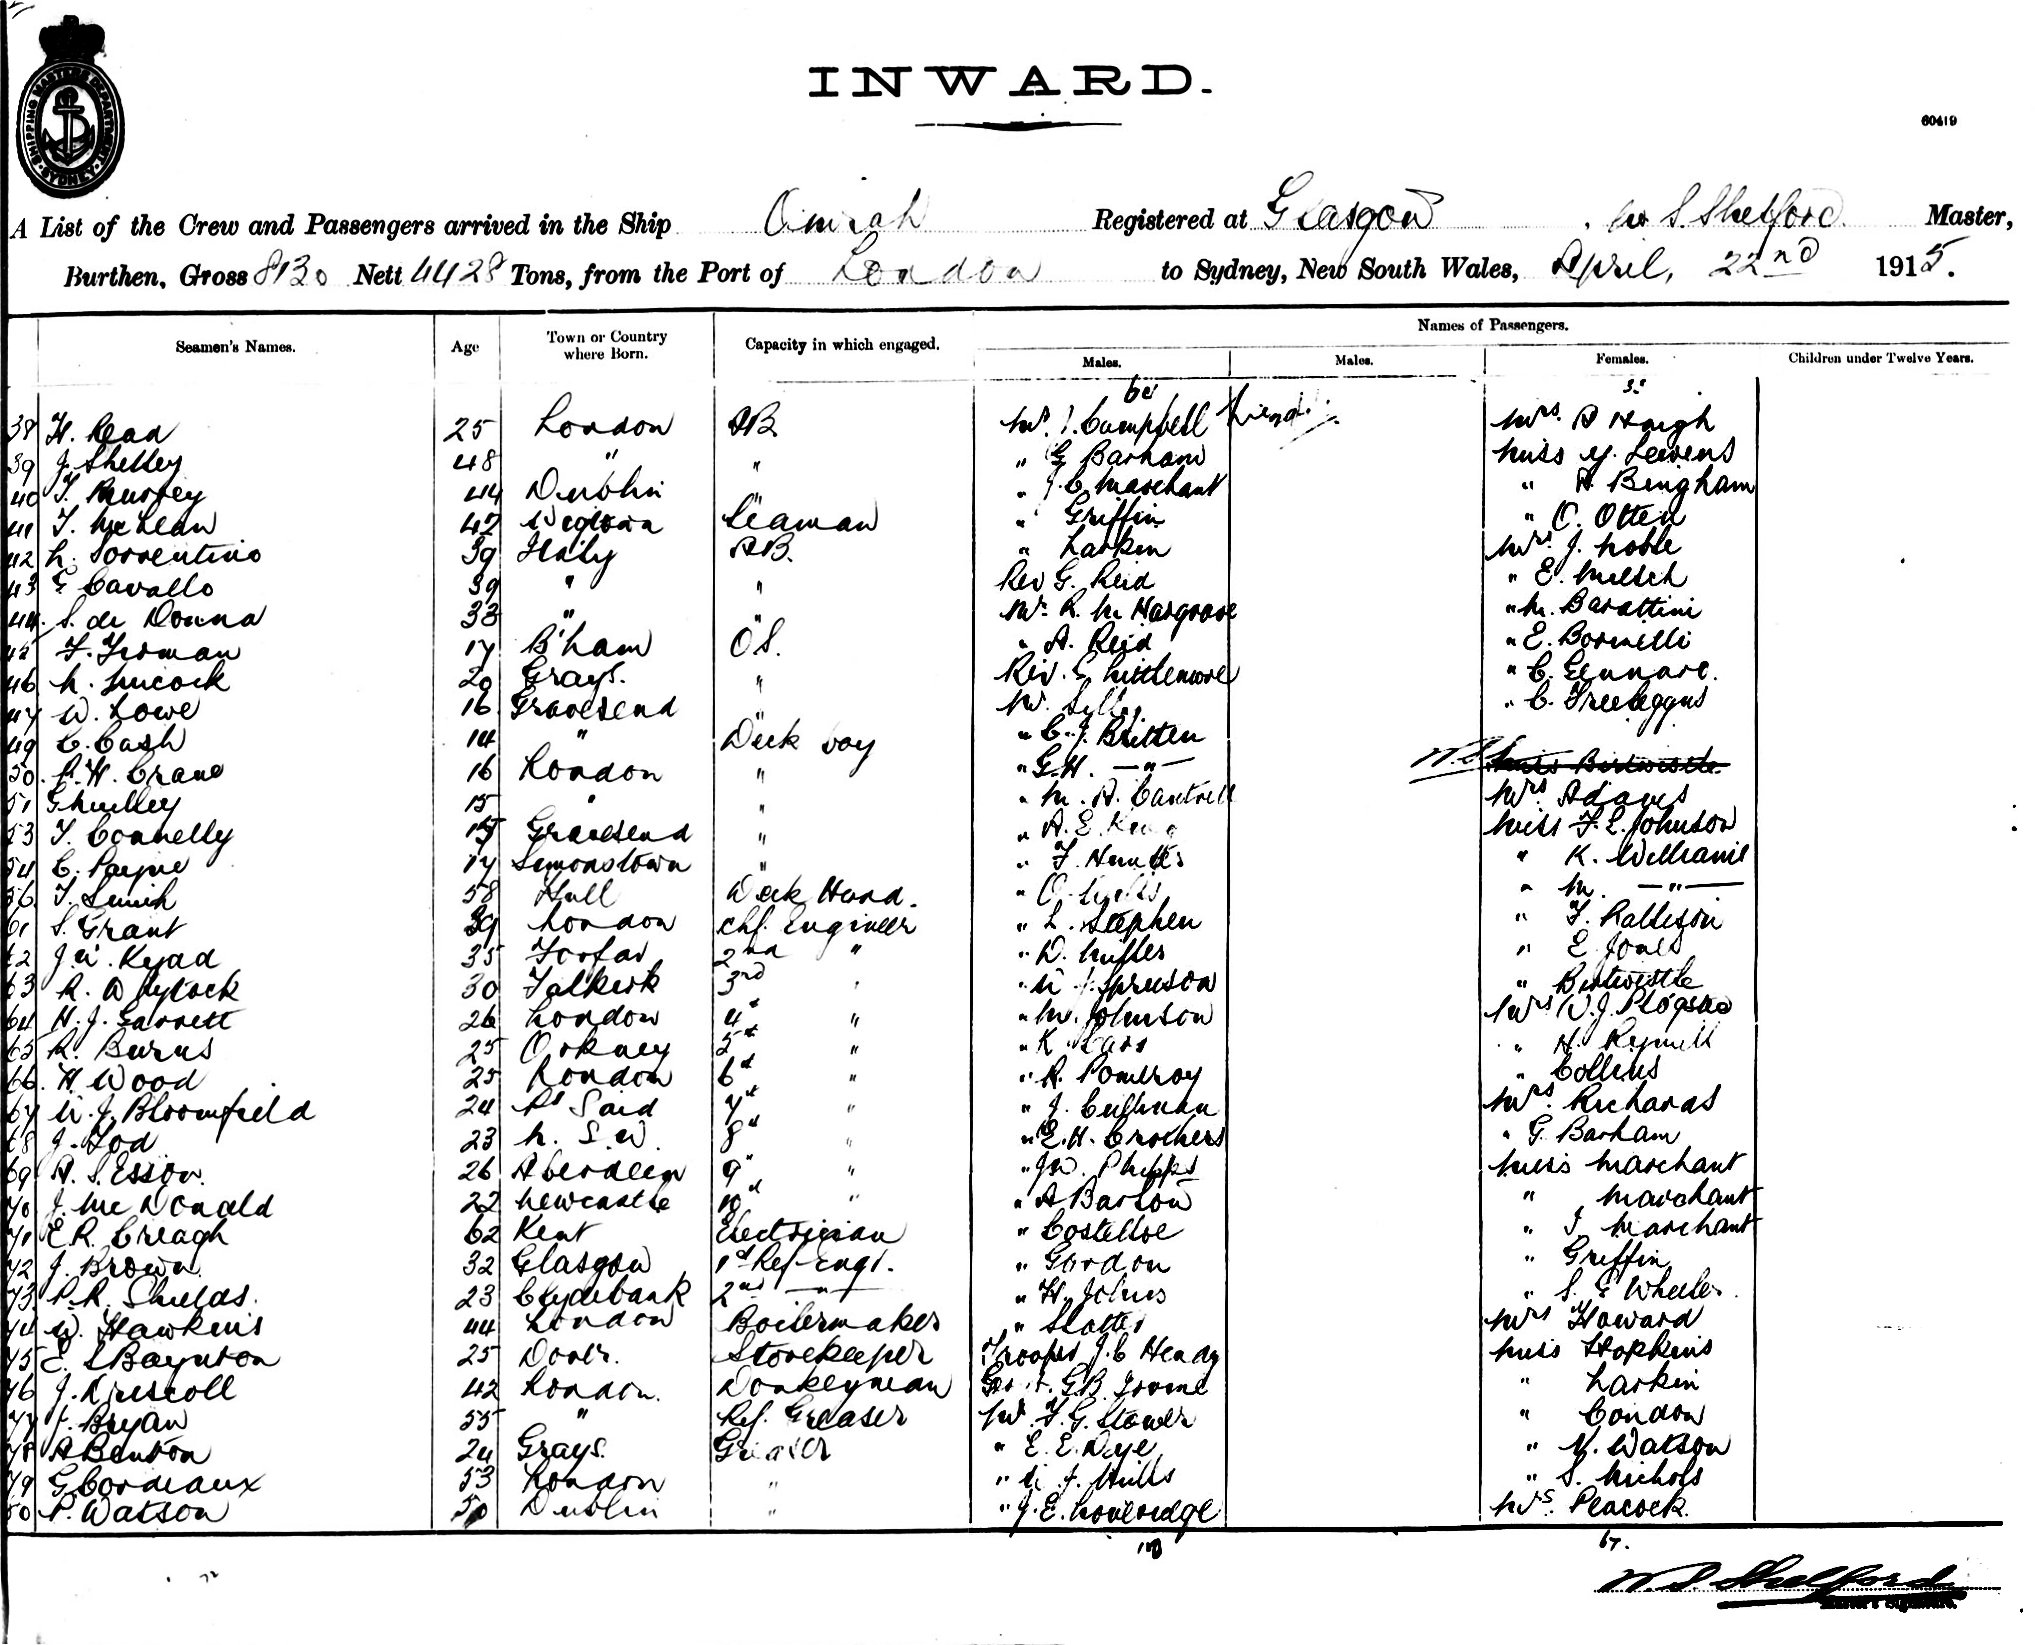 SHIPPING MASTER'S DEPARTMENT SYDNEY
INWARD.
60419
A List of the Crew and Passengers arrived in the Ship Omrah Registered at Glasgow W S. Shelford Master,
Burthen, Gross 8130 Nett 4428 Tons, from the Port of London to Sydney, New South Wales, April, 22nd 1915.
Seamen's Names. Age Town or Country where Born. Capacity in which engaged. Names of Passengers.
Males. Males. Females. Children under Twelve Years.
38 H. Read 25 London AB Mr. J. Campbell Mrs. A Haigh
39 J. Shelley 48 " " " G Barham Miss Y. Levens
40 T. 44 Dublin " " J. C. Marchant " A. Bingham
41 T. McLean 42 Seaman " Griffin " O. Otten
42 N. Sorrentino 39 Italy AB. " Larkin Mrs. J. Noble
43 G Cavallo 39 " " Rev G. Reid " E. MElsch
44. S. de Donna 33 " " Mr. R. M Hargrove " M. Barattini
45 F. Firman 17 B'ham O.S. " A. Reid " E. Borinelli
46 20 Grays. " Rev. G Littlemore " C. Gennare.
47 W. Lowe 16 Gravesend " Mr. " C. Treeleggus
49 C. Cash 14 " Deck boy " C. J. Britten
50. H. Crane 16 London " " G. H. — " — Miss Birtwistle
51 15 " " " M. A. Cantrell Mrs Adams
53 T. Connelly 15 Gravesend " " A. E. Miss F. E. Johnson
54 C. Payne 17 Simonstown " " F Hunter " K. Williams
56 T. Smith 58 Hull Deck Hand. " O. " M. — " —
61 S. Grant 39 London Chf. Engineer " L. Stephen " F.
62 J. W. Kyad 35 Forfar 2nd " " D. " E Jones
63 R. 30 Falkirk 3rd " " W J Spruson " Birtwistle
64 H. J. Garrett 26 London 4th " " M. Johnson Mrs V. J.
65 R. Burns 25 Orkney 5th " " K " H.
66. H. Wood 25 London 6th " " R. Pomeroy " Collins
67 W. J. Bloomfield 24 Pt Said 7th " " J. Cullinan Mrs. Richards
68 J. Tod 23 N. S. W. 8th " " E. H. Crothers " G. Barham
69 A. S. Esson. 26 Aberdeen 9th " " J W. Phipps Miss Marchant
70 J. McDonald 22 Newcastle 10th " " A Barton " Marchant
71 E R. Creagh 62 Kent Electrician " Costelloe " I Marchant
72 J. Brown 32 Glasgow 1st Ref-Engr. " Gordon " Griffin
73 P. R. Shields. 23 Clydebank 2nd — " — " H. Johns " S. E Wheeler.
74 W. Hawkins 44 London Boilermaker " Slatter Mrs Howard
75 E. S Baynton 25 Dover. Storekeeper Trooper J. C Hendy Miss Hopkins
76 J. Driscoll 42 London. Donkeyman G B. Irvine " Larkin
77 J. Bryan 55 " Ref. Greaser Mr. F. G. Stower " Condon
78 A Benton 24 Grays. Greaser " E. E. Dye " V. Watson
79 G Cordeaux 53 London " " W. J. Mills " S. Nichols
80 P. Watson 50 Dublin " " J. E. Loveridge Mrs. Peacock
W. S. Shelford
Master's Signature.